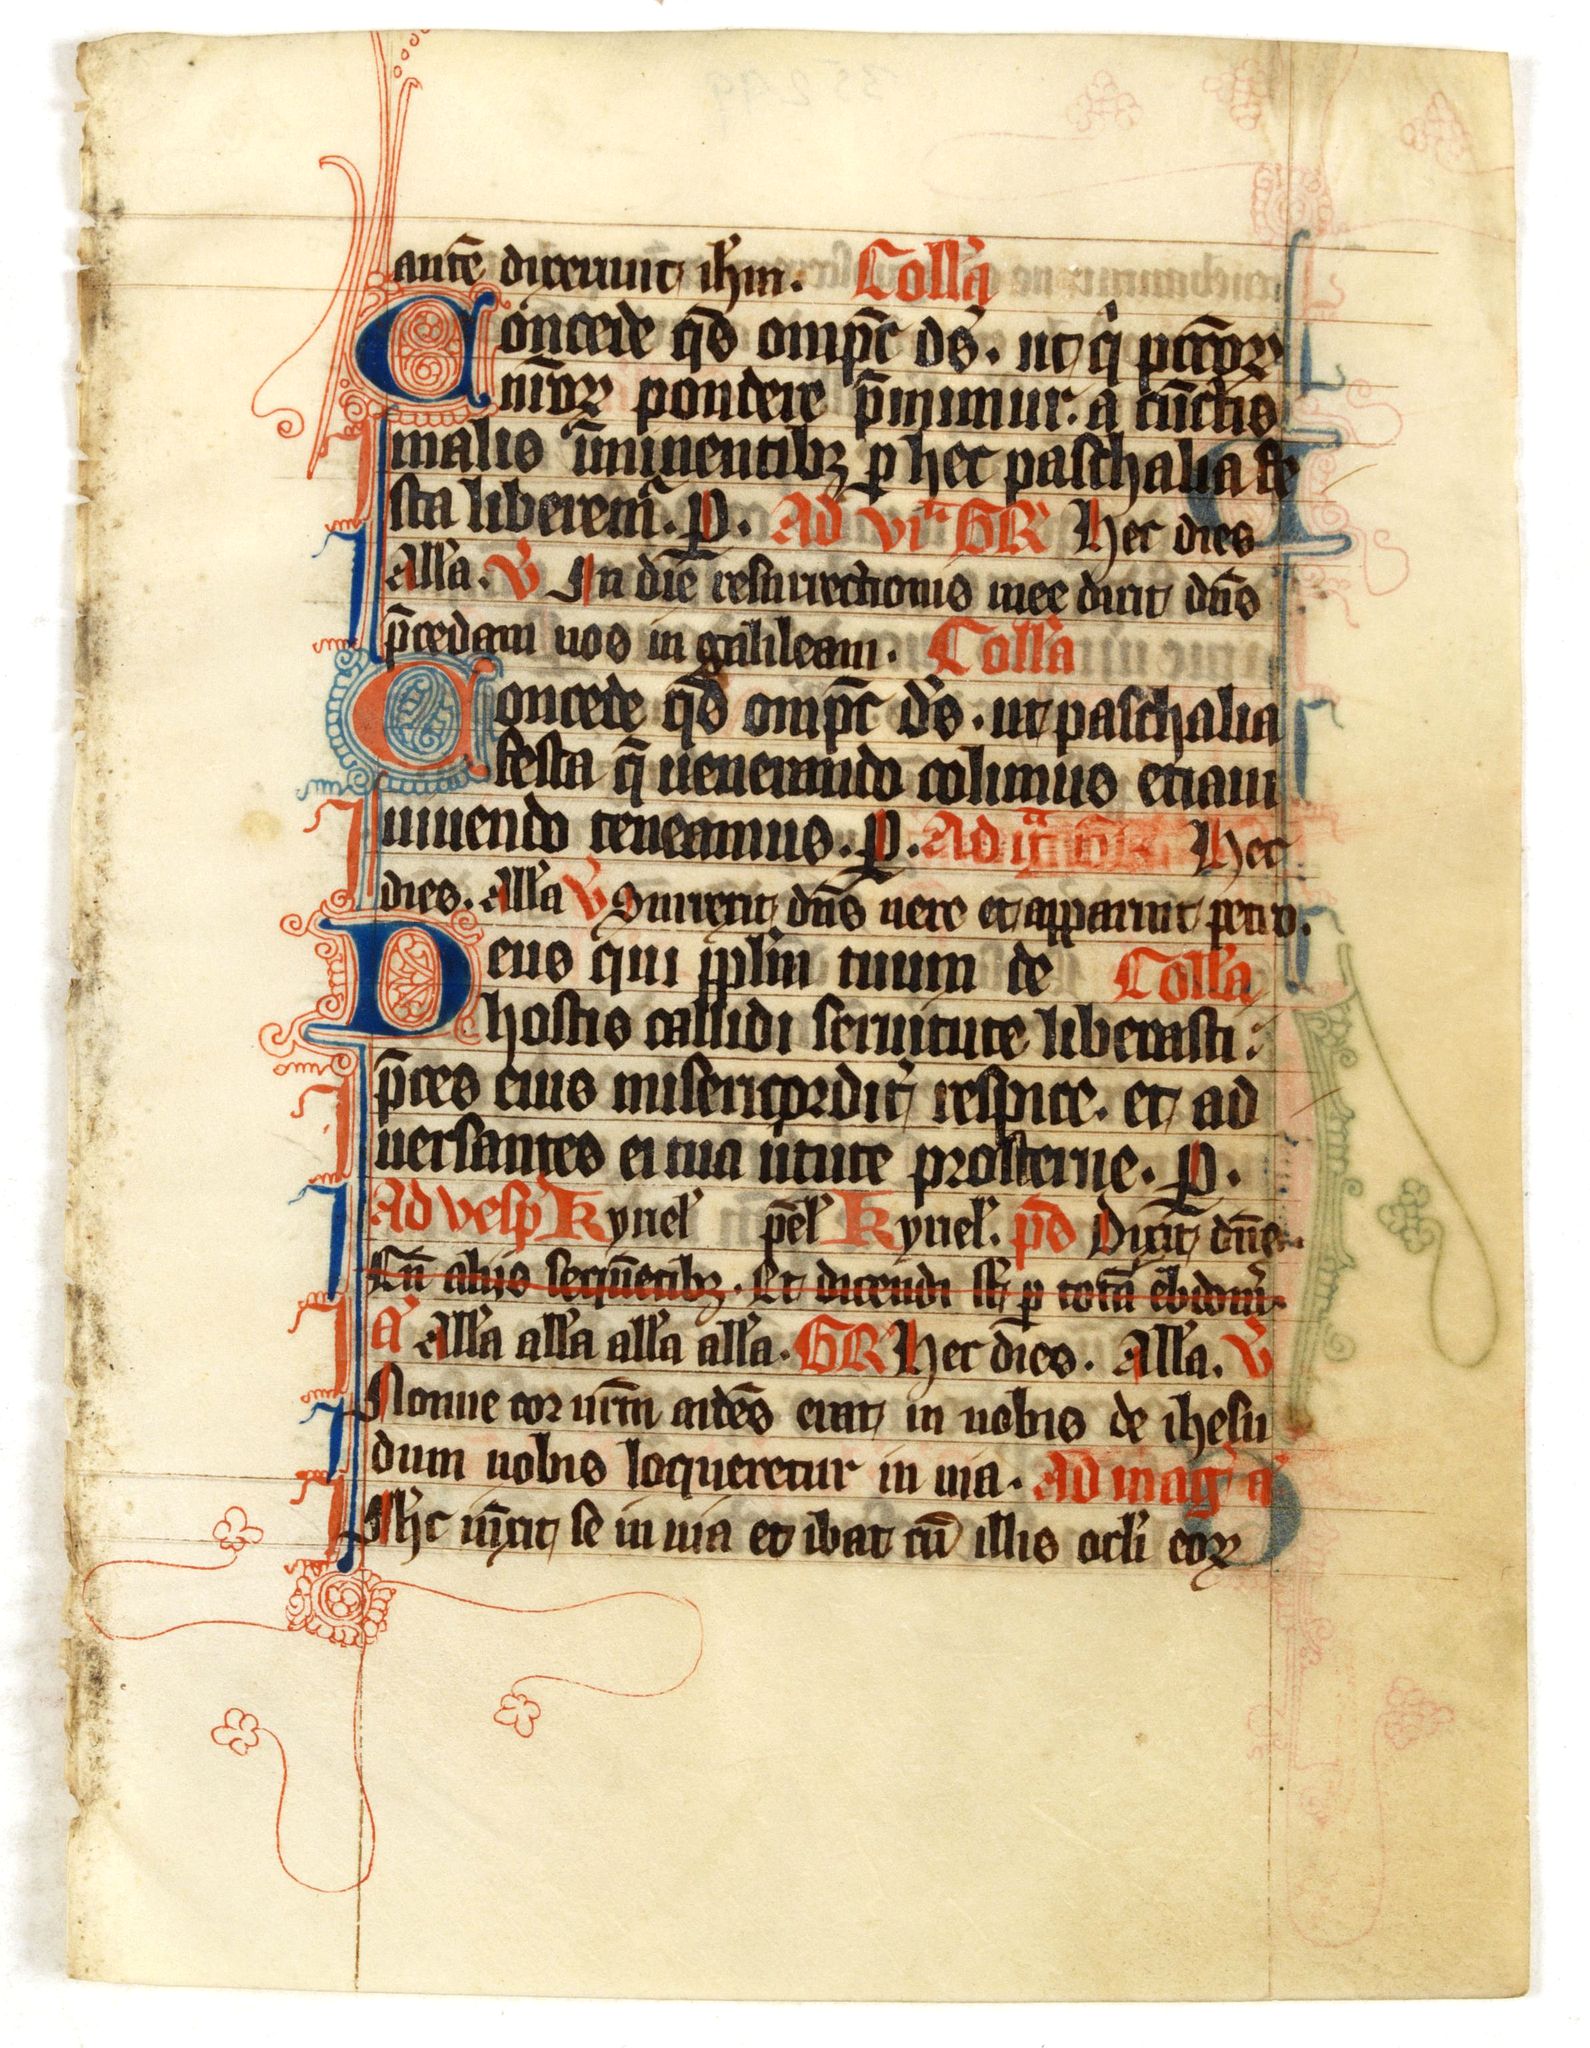 autē dixerunt ihm̄. Coll̄a
Concede q̄s omp̄c ds̄. ut q̇ pcc̄oꝝ
nr̄oꝝ pondere p̄mimur. a cūctis
malis īminentibꝫ ꝑ hec paschalia fe
sta liberem̄. P. Ad vi GR Hec dies
All̄a. V In die resurrectionis mee dicit dn̄s
p̄cedam uos in galileam. Coll̄a
Concede q̄s omp̄c ds̄. ut paschalia
festa q̄ uenerando colimus etiam
uiuendo teneamus. P. Ad Hec
dies. All̄a V Surrexit dn̄s uere et apparuit petro.
Deus qui ppl̄m tuum de Coll̄a
hostis callidi seruitute liberasti.
p̄ces eius misericordit̓ respice. et ad
uersantes ei tua ūtute prosterne. P.
Ad vesp̄ Kyriel̓ Kyriel̓. p̄s Dixit dn̄s
Cū alijs sequētibꝫ. Et dicendi st̄ ꝑ totā ebdom̄.
A All̄a all̄a all̄a all̄a. GR Hec dies. All̄a. V
Nonne cor ur̄m ardēs erat in uobis de ihesu
dum uobis loqueretur in uia. Ad mag̓ a
Ihc iūxit se in uia et ibat cū illis ocl̓i eoꝝ